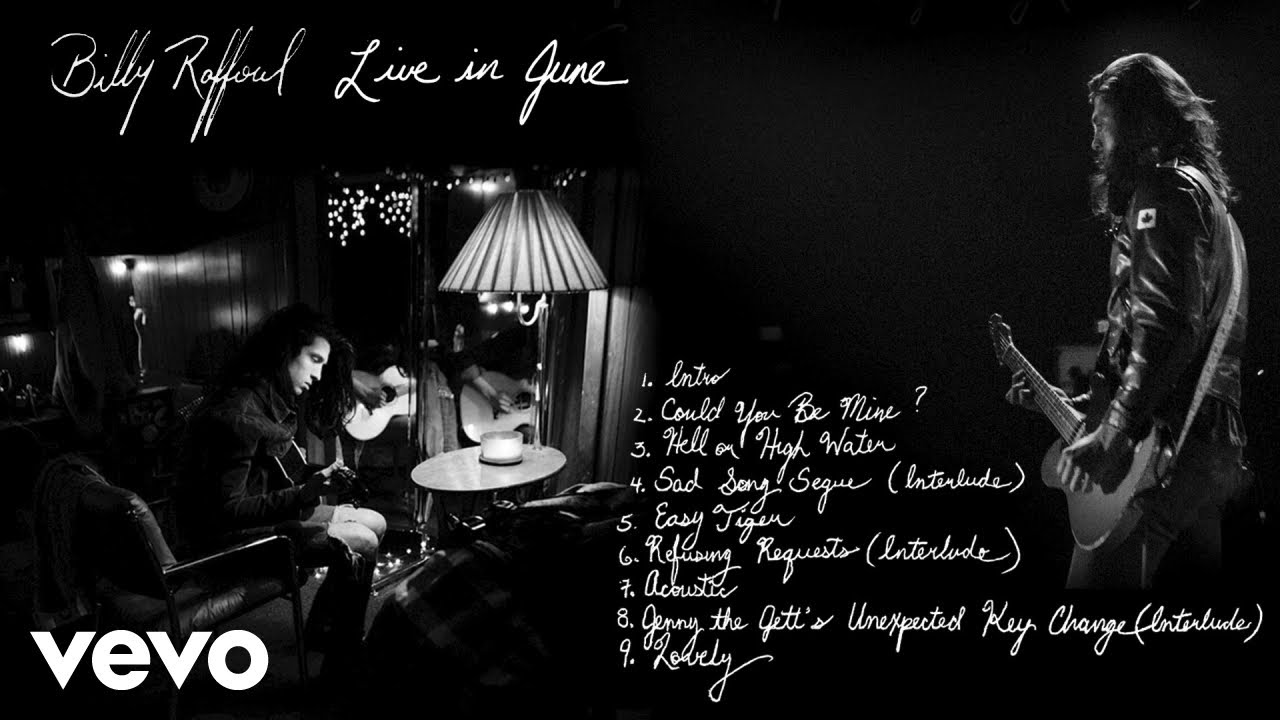 Billy Raffoul Live in June
1. Intro
2. Could You Be Mine?
3. Hell or High Water
4. Sad Song Segue (Interlude)
5. Easy Tiger
6. Refusing Requests (Interlude)
7. Acoustic
8. Jenny the Jett's Unexpected Key Change (Interlude)
9. Lovely
vevo